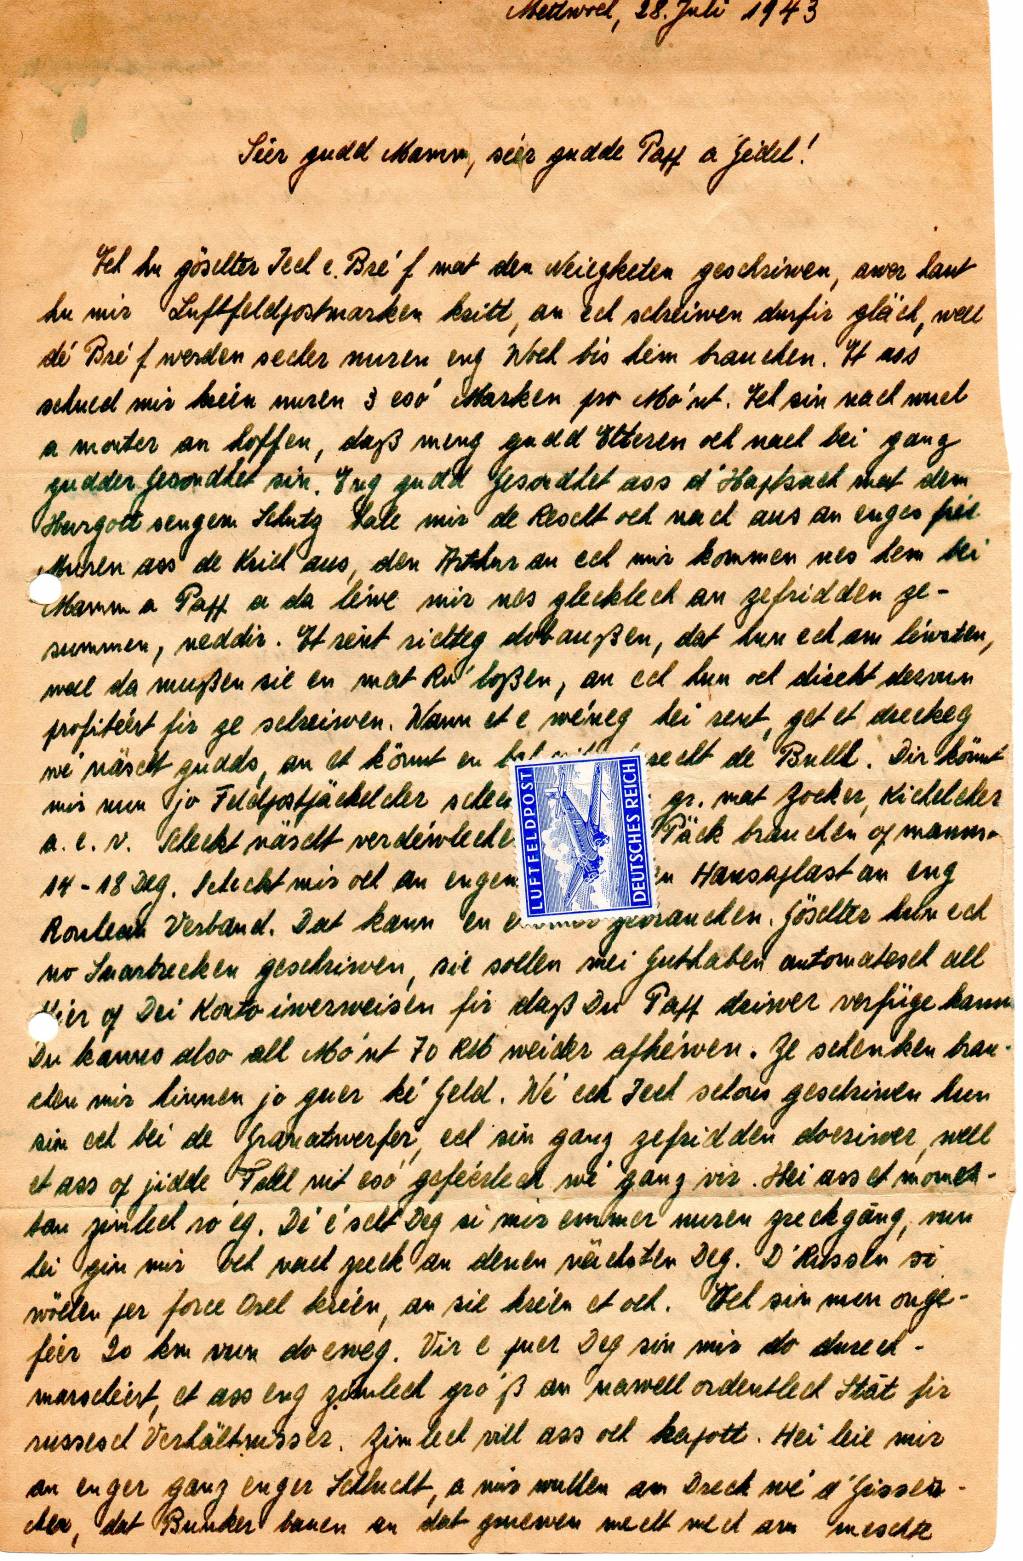 Mettwoch, 28. Juli 1943
Séer gudd Mamm, séer gudde Papp a Jedel!
Ech hu göschter Iech e Bré f mat den Neiegketen geschriwen, awer haut
hu mir Luftfeldpostmarken kritt, an ech schreiwen durfir gläch, well
dé Bré f werden secher nuren eng Woch bis heim brauchen. Et ass
schued mir kréien nuren 3 esó Marken pro Mó'nt. Ech sin nach wuel
a monter an hoffen, daß meng gudd Elteren och nach bei ganz
gudder Gesondhet sin. Eng gudd Gesondhet ass d'Haptsach mat dem
Herrgott sengem Schutz hale mir de Rescht och nach aus an enges fréi
Muren ass de Krich aus, den Arthur an ech mir kommen nes hem bei
Mamm a Papp a da léiwe mir nes glecklech an zefridden ze-
summen, neddir. Et rént richteg dobaußen, dat hun ech am léiwsten,
well da mußen sie en mat Ró' loßen, an ech hun och direkt dervun
profitéiert fir ze schreiwen. Wann et e wéineg hei rent, get et dreckeg
wé näscht gudds, an et könnt en duerch de Bulli. Dir könnt
mir nun jo Feldpostpäckelcher gr. mat Zocker, Kichelcher
a. e. v. Scheckt näscht verdéirwleches Päck brauchen of manns-
14-18 Deg. Scheckt mir och an engem Hansaplast an eng
Rouleau Verband. Dat kann en ëmmer gebrauchen. Göschter hun ech
no Saarbrecken geschriwen, sie sollen mei Guthaben automatesch all
Véier of Dei Konto iwerweisen fir daß Du Papp driwer verfüge kann
Du kanns also all Mó'nt 70 RM weider afhéiwen. Ze schenken brau-
chen mir hinnen jo guer ké Geld. Wé ech Iech schons geschriwen hun
sin ech bei de Granatwerfer, ech sin ganz zefridden doriwer, well
et ass of jidde Fall nit esó geféerlech wé ganz vir. Hei ass et momen-
tan zimlech ró'eg. Dé é'scht Deg si mir emmer nuren zreckgäng, vun
hei gin mir och nach zreck an denen nächsten Deg. D'Russen si
wöllen per force Orel kréien, an sie kréien et och. Ech sin nun onge-
féer 20 km vun do eweg. Vir e puer Deg sin mir do durech-
marschéiert, et ass eng zimlech gró'ß an nawell ordentlech Stât fir
russesch Verhältnisser. Zimlech vill ass och kapott. Hei leie mir
an enger ganz enger Schlucht, a mir wullen am Dreck wé d'Gissei-
cher, dat Bunker bauen an dat gruewen mecht mech am meschte
LUFTFELDPOST
DEUTSCHES REICH